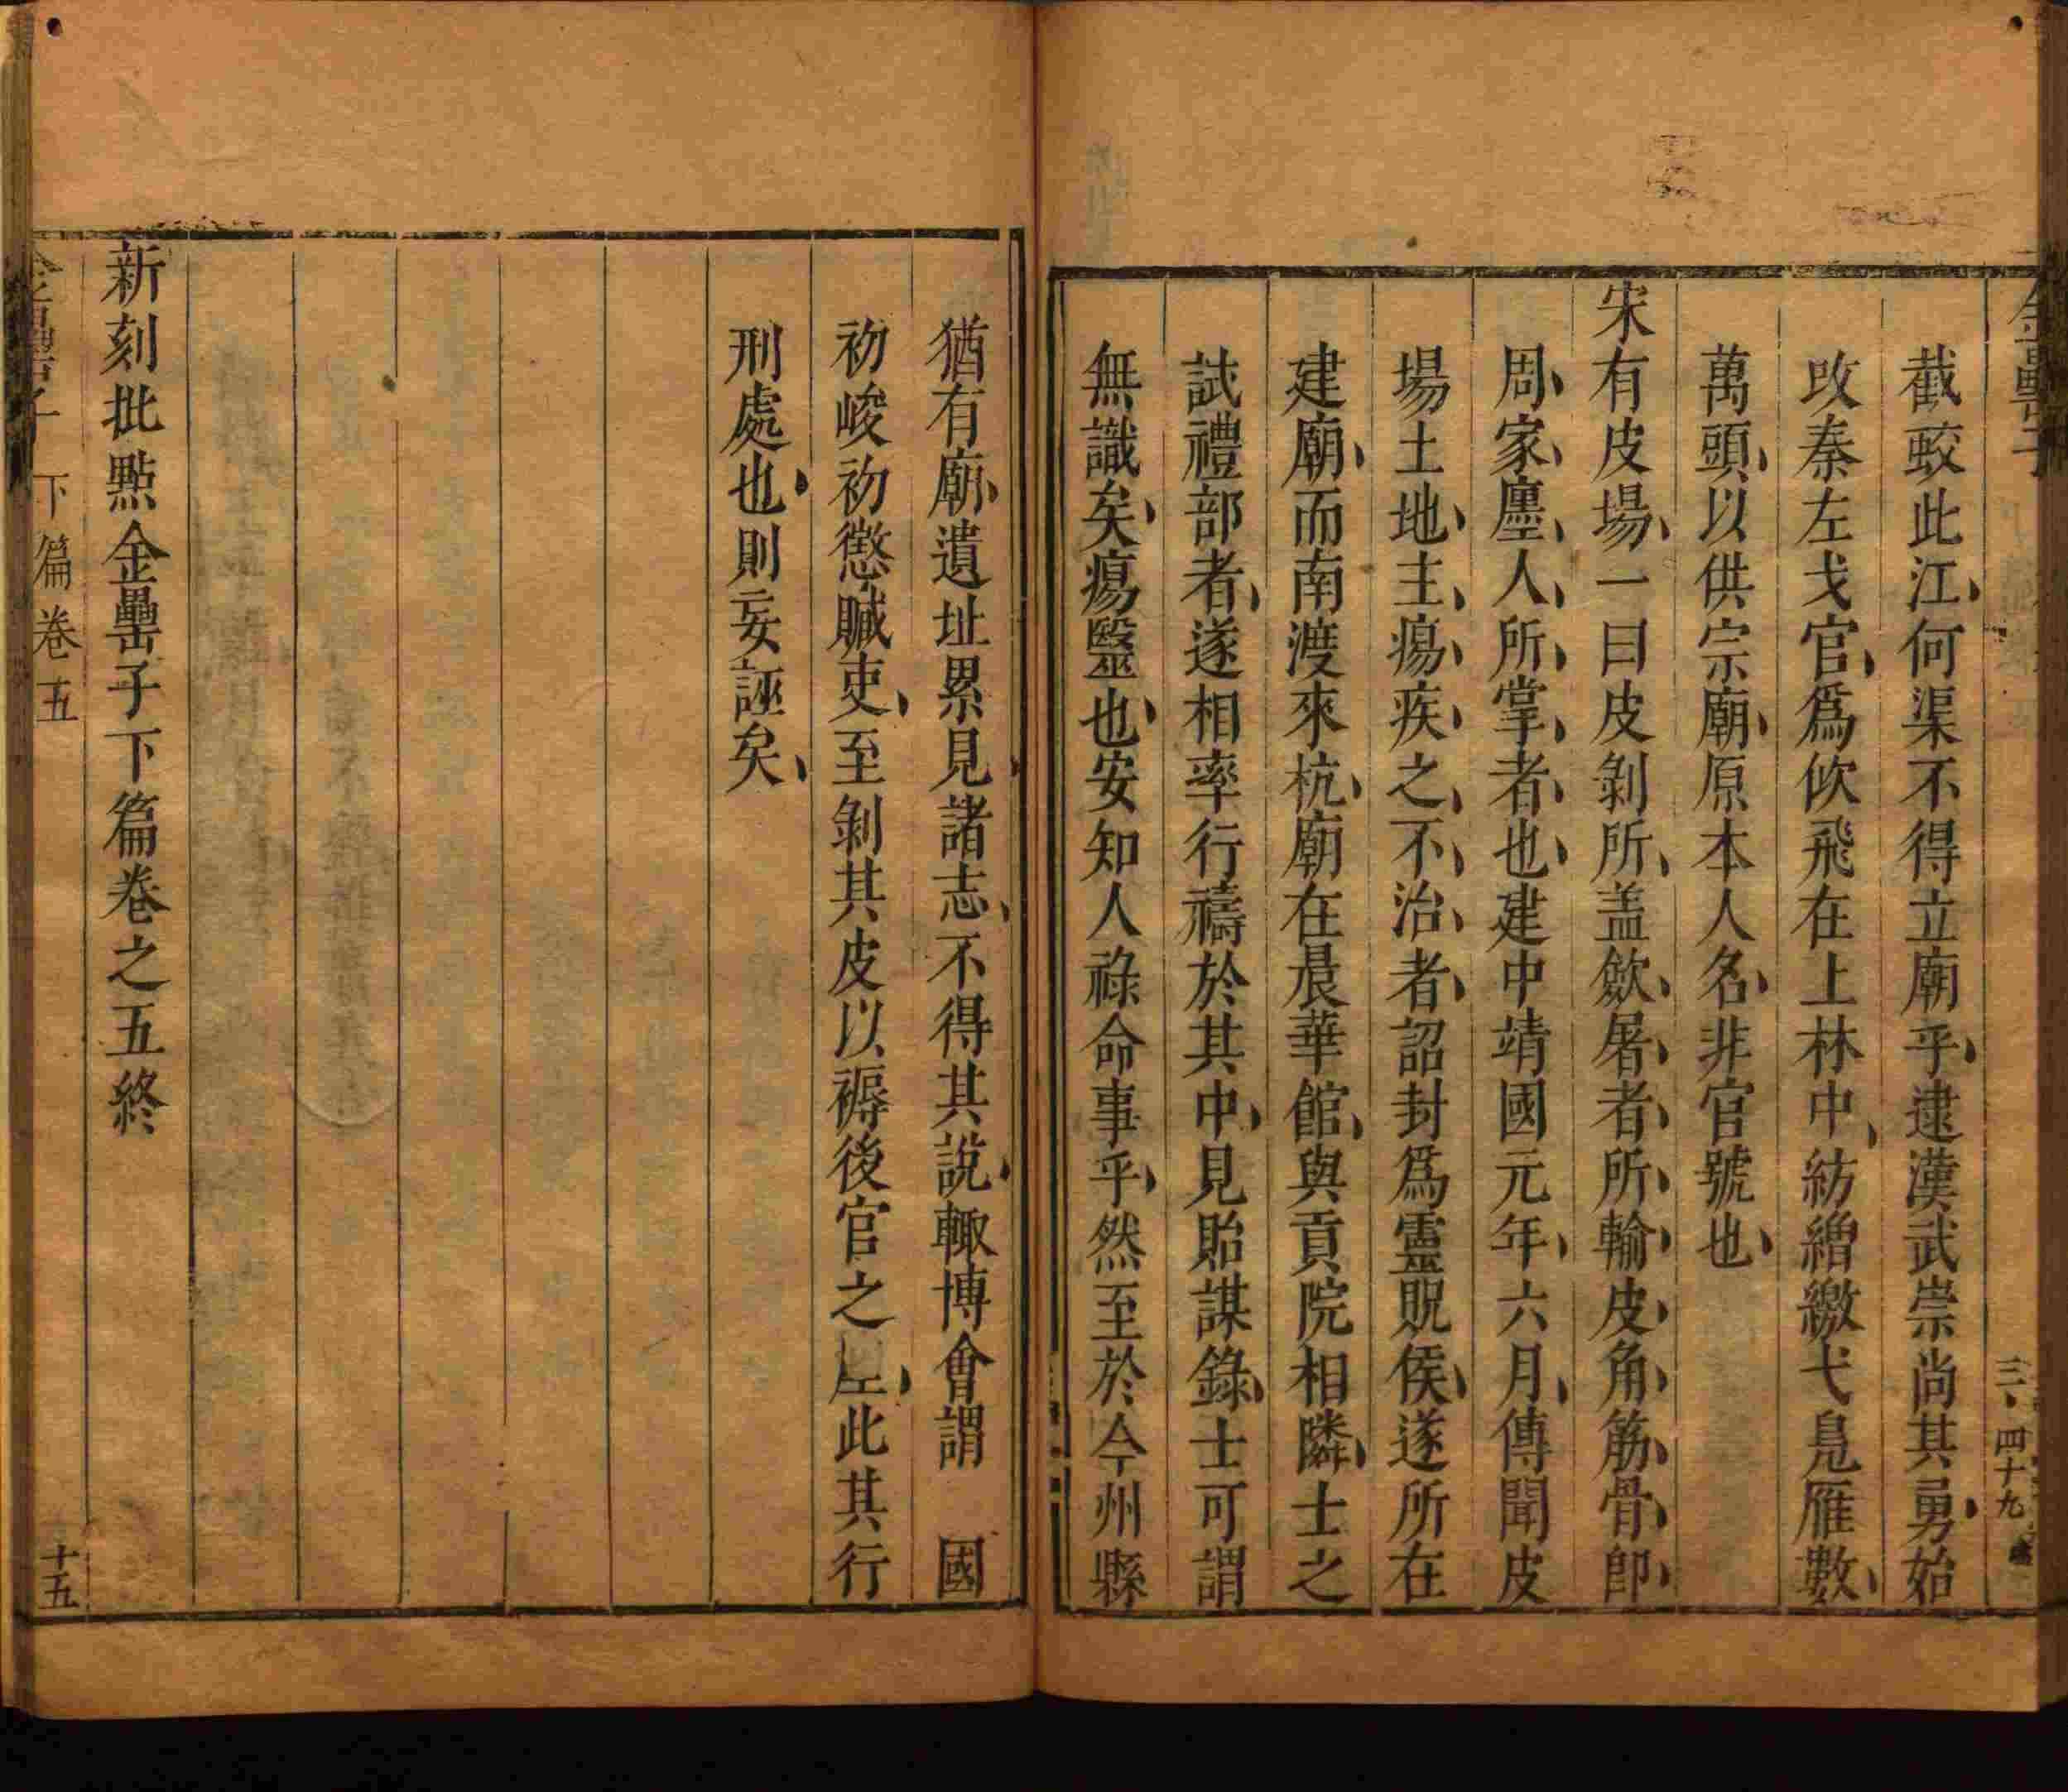 金罍子
三
四十九
截蛟此江何渠不得立廟乎逮漢武崇尚其勇始
改秦左戈官爲佽飛在上林中紡繒繳弋鳬雁數
萬頭以供宗廟原本人名非官號也
宋有皮場一曰皮剝所盖歛屠者所輸皮角筋骨卽
周家廛人所掌者也建中靖國元年六月傳聞皮
場土地主瘍疾之不治者詔封爲靈貺侯遂所在
建廟而南渡來杭廟在晨華館與貢院相隣士之
試禮部者遂相率行禱於其中見貽謀錄士可謂
無識矣瘍毉也安知人祿命事乎然至於今州縣
猶有廟遺址累見諸志不得其說輙博會謂　國
初峻初懲贓吏至剝其皮以褥後官之此其行
刑處也則妄誣矣
新刻批點金罍子下篇卷之五終
金罍子　下篇卷五
十五